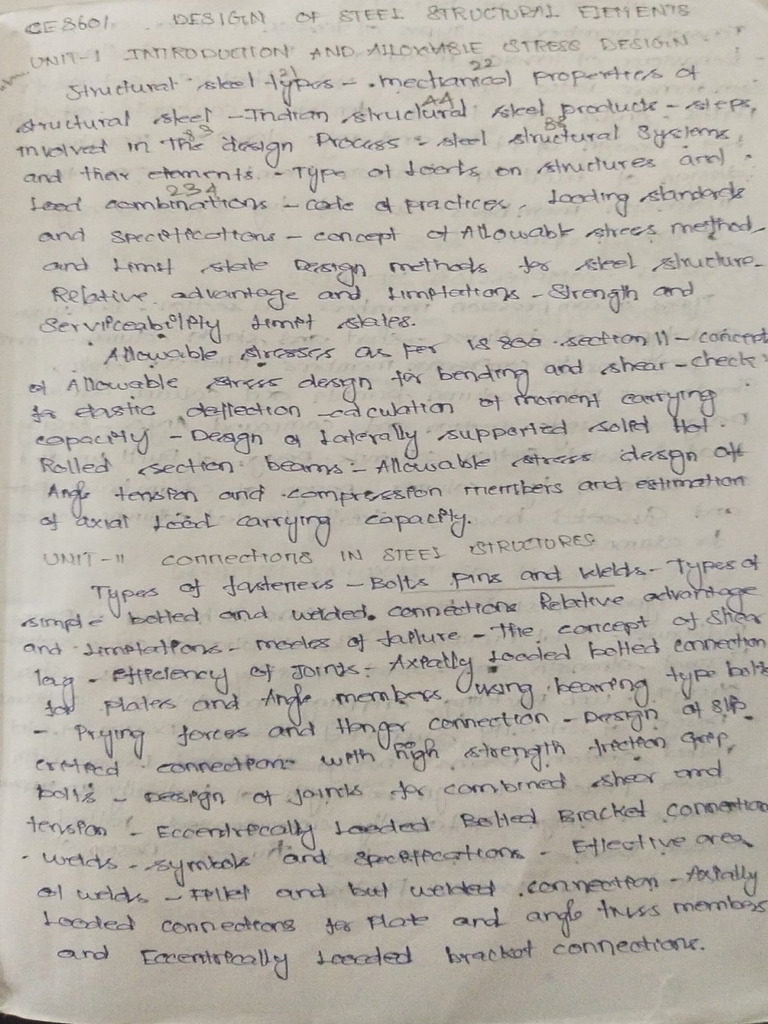 CE8601 DESIGN OF STEEL STRUCTURAL ELEMENTS
UNIT-I INTRODUCTION AND ALLOWABLE STRESS DESIGN
Structural steel types - mechanical properties of
22
structural steel - Indian structural steel products - steps,
44
involved in the design Process - steel structural Systems
33
and their elements. - Type of Loads on structures and
Load combinations - code of practices, Loading standards
234
and specifications - concept of Allowable stress method,
and Limit state Design methods for steel structure.
Relative advantage and Limitations - Strength and
Serviceability Limit states.
Allowable stresses as per IS 800 section 11 - concept
of Allowable stress design for bending and shear - check
for elastic deflection - calculation of moment carrying
capacity - Design of Laterally supported solid Hot
Rolled section beams - Allowable stress design of
Angle tension and compression members and estimation
of axial Load carrying capacity.
UNIT-II CONNECTIONS IN STEEL STRUCTURES
Types of fasteners - Bolts Pins and welds - Types of
simple bolted and welded. connections Relative advantage
and Limitations - modes of failure - The concept of Shear
lag - efficiency of Joints - Axially Loaded bolted connection
for Plates and Angle members using bearing type bolts
- Prying forces and Hanger connection - Design of Slip
critical connections with high strength friction Grip,
bolts - Design of joints for combined shear and
tension - Eccentrically Loaded Bolted Bracket connection
- welds - symbols and specifications - Effective area
of welds - Fillet and but welded connection - Axially
Loaded connections for Plate and angle truss members
and Eccentrically Loaded bracket connections.